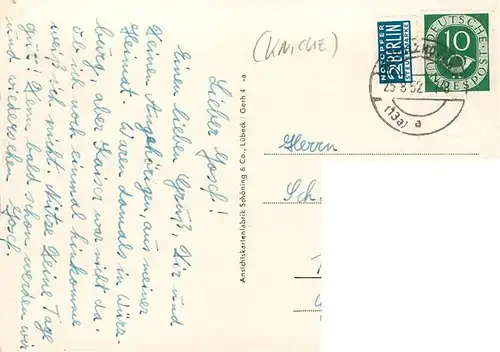 Lieber Josef!
Einen lieben Gruß, Dir und
Deinen Angehörigen, aus meiner
Heimat. Waren damals in Würz-
burg, aber Kaiser war nicht da.
Ob ich noch einmal hinkomme
weiß ich nicht. Nütze Deine Tage
gut! Denn bald schon werden wir
uns wiedersehen Josef.
Ansichtskartenfabrik Schöning & Co., Lübeck Gerh 4 -a
(KNICKE)
NOTOPFER
2 BERLIN
STEUERMARKE
DEUTSCHE
10
BUNDESPOST
25.8.52
(13a) a
Herrn
Sch